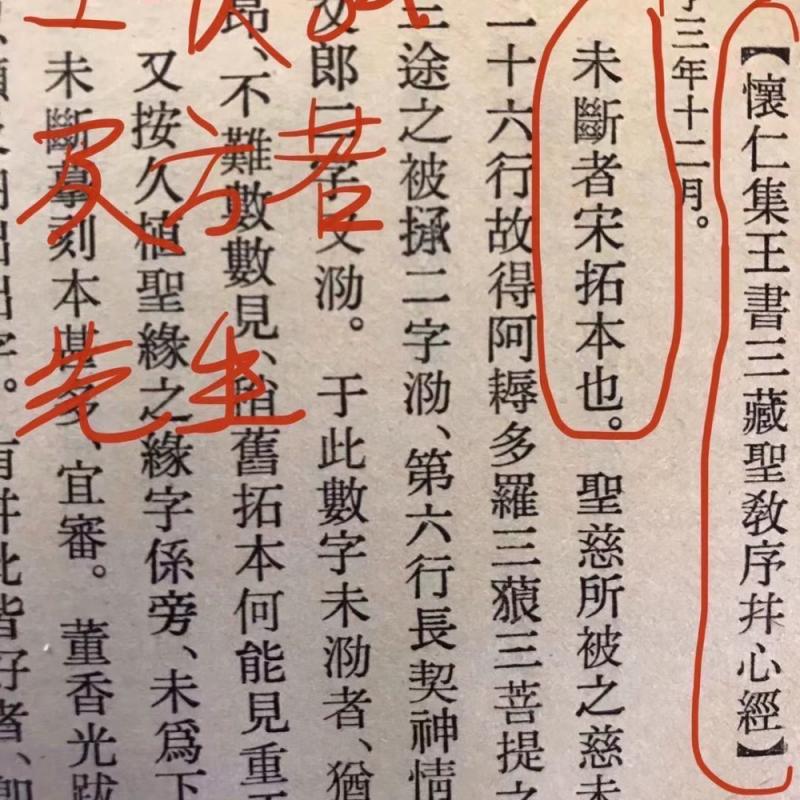 【懷仁集王書三藏聖教序并心經】
三年十二月。
未斷者宋拓本也。 聖慈所被之慈未
一十六行故得阿耨多羅三藐三菩提之
三途之被拯二字泐、第六行長契神情
文郎二字又泐。 于此數字未泐者、猶
昂、不難數數見、稍舊拓本何能見重
又按久植聖緣之緣字係旁、未爲下
未斷摹刻本甚多、宜審。 董香光跋
有并此皆好者、
及方若
先生